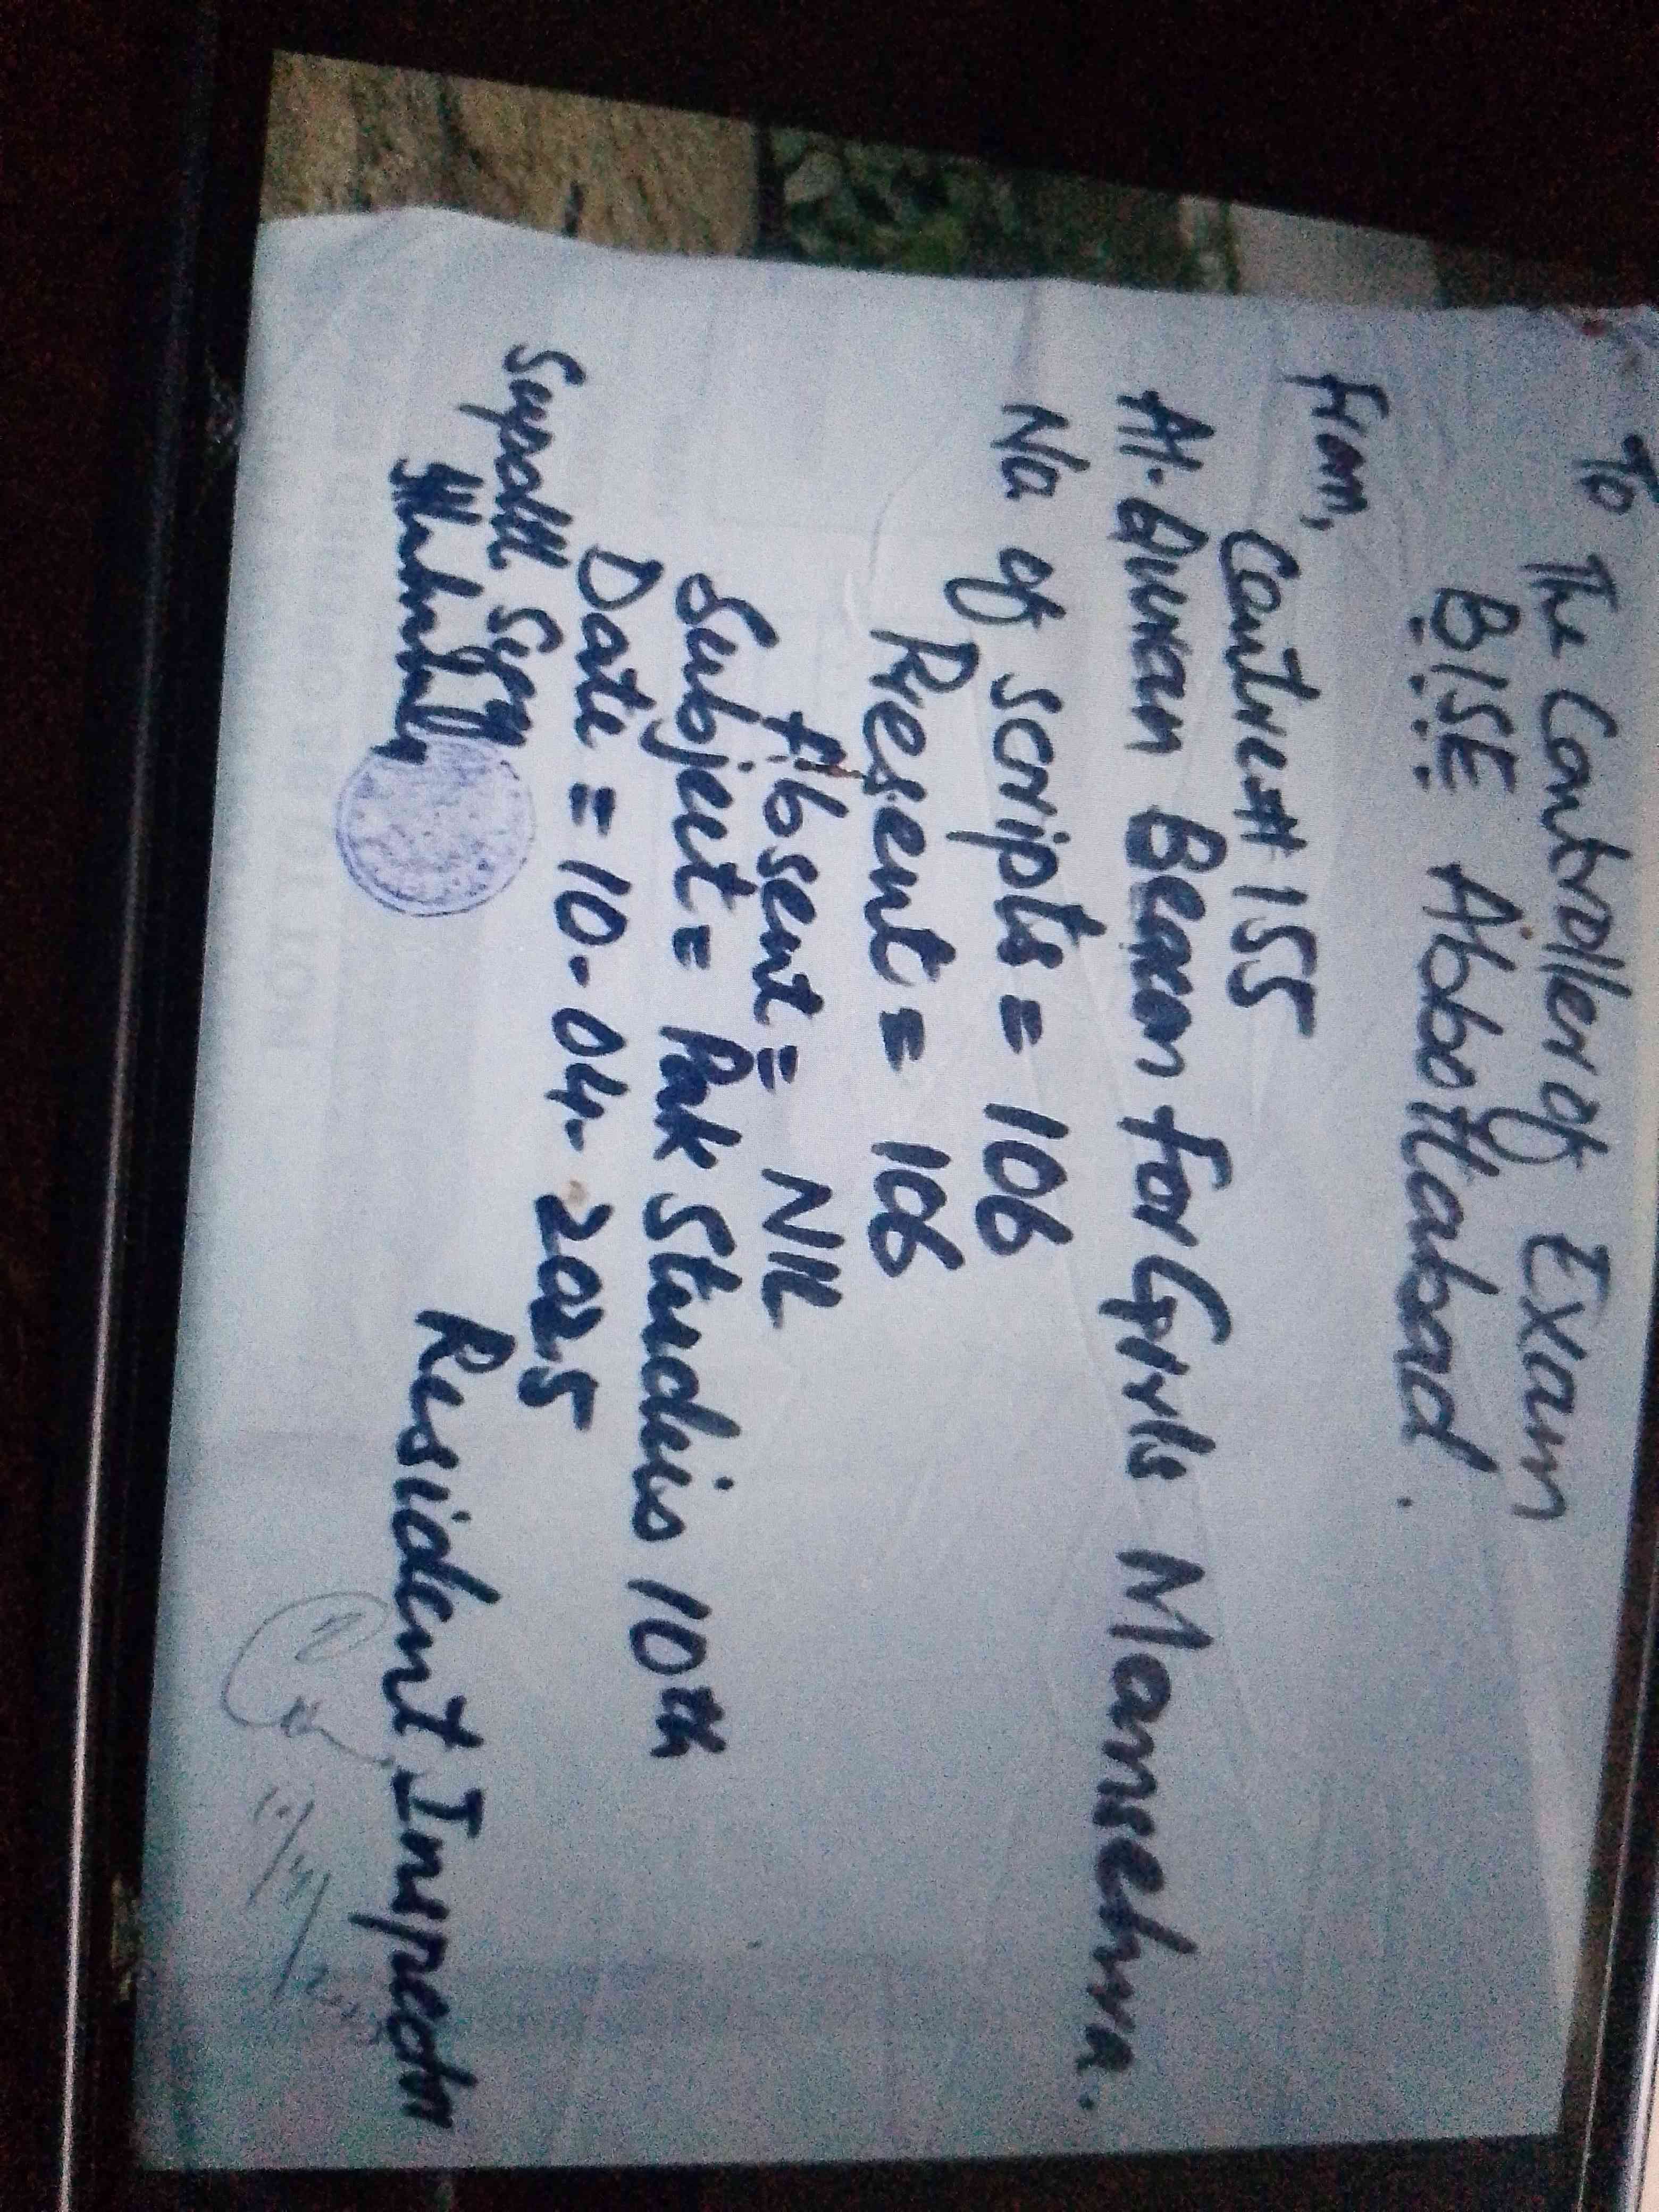 To The Controller of Exam
B.I.S.E Abbottabad.
From,
Centre # 155
Al-Quran Beacon For Girls Mansehra.
No of scripts = 106
Present = 106
Absent = NIL
Subject = Pak Studies 10th
Date = 10-04-2025
Supdtt Sign
Resident Inspector